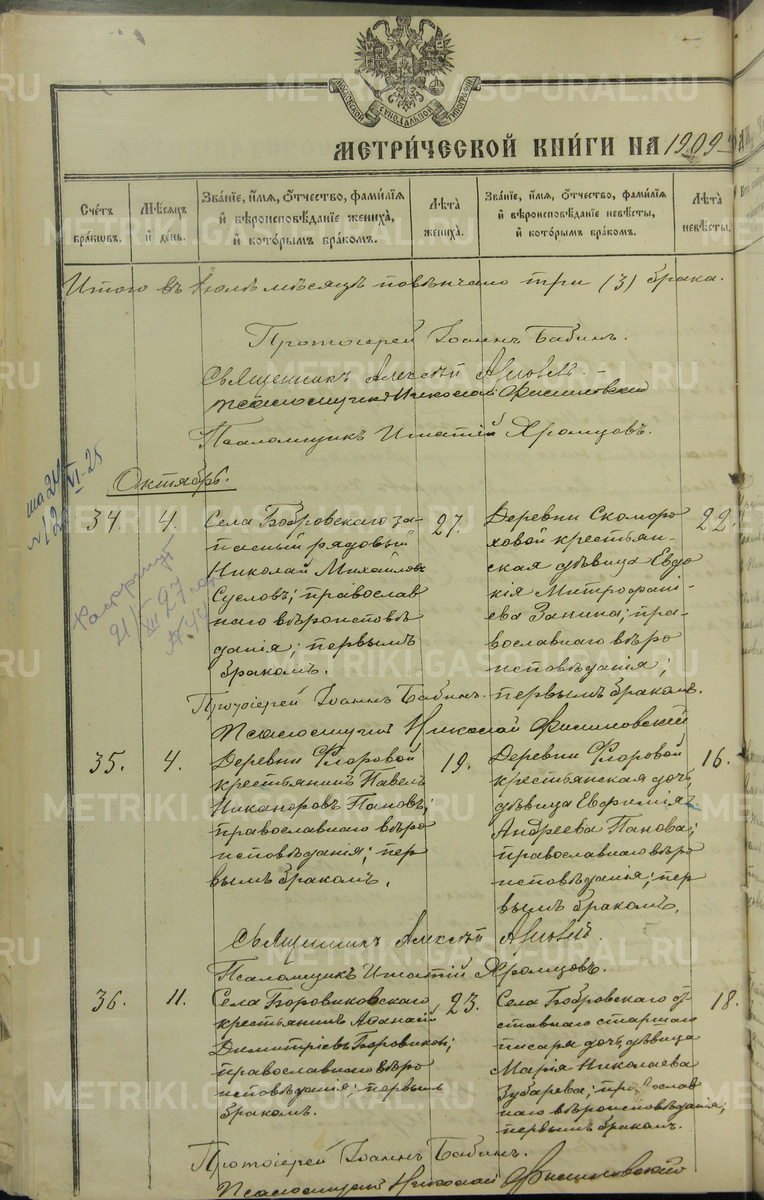 МОСКОВСКОЙ СУНОДАЛЬНОЙ ТИПОГРАФІИ
МЕТРИ́ЧЕСКОЙ КНИ́ГИ НА 1909
Сче́тъ бра́кωвъ.
Мѣ́сяцъ и҆ день.
Зва́нїе, и҆́мя, ѻ҆́тчество, фами́лїя и҆ вѣроисповѣ́данїе жениха̀, и҆ кото́рымъ бра́комъ.
Лѣ̑та жениха̀.
Зва́нїе, и҆́мя, ѻ҆́тчество, фами́лїя и҆ вѣроисповѣ́данїе невѣ́сты, и҆ кото́рымъ бра́комъ.
Лѣ̑та невѣ́сты.
Итого въ Іюлѣ мѣсяцѣ повѣнчано три (3) брака.
Протоіерей Іоаннъ Бабинъ.
Священникъ Алексѣй
Псаломщикъ Николай
Псаломщикъ Игнатій Хромцовъ.
Октябрь.
34.
4.
Села Бобровскаго за-
пасный рядовый
Николай Михайловъ
Сусловъ; православ
наго вѣроисповѣ
данія; первымъ
бракомъ.
27.
Деревни Скоморо
ховой крестьян-
ская дѣвица Евдо
кія Митрофані-
ева Занина; пра-
вославнаго вѣро
исповѣданія;
первымъ бракомъ.
22.
Протоіерей Іоаннъ Бабинъ.
Псаломщикъ Николай
35.
4.
Деревни Фларовой
крестьянинъ Павелъ
Никаноровъ Пановъ;
православнаго вѣро
исповѣданія; пер
вымъ бракомъ.
19.
Деревни Фларовой
крестьянская дочь,
дѣвица Евфимія
Андреева Панова;
православнаго вѣро
исповѣданія; пер
вымъ бракомъ.
16.
Священникъ Алексѣй
Псаломщикъ Игнатій Хромцовъ.
36.
11.
Села Боровиковскаго
крестьянинъ Аѳанасій
Димитріевъ Боровиковъ;
православнаго вѣро
исповѣданія; первымъ
бракомъ.
23.
Села Бобровскаго от
ставнаго старшаго
писаря дочь, дѣвица
Марія Николаева
Зубарева; православ
наго вѣроисповѣданія;
первымъ бракомъ.
18.
Протоіерей Іоаннъ Бабинъ.
Псаломщикъ Николай
METRIKI.GASO-URAL.RU